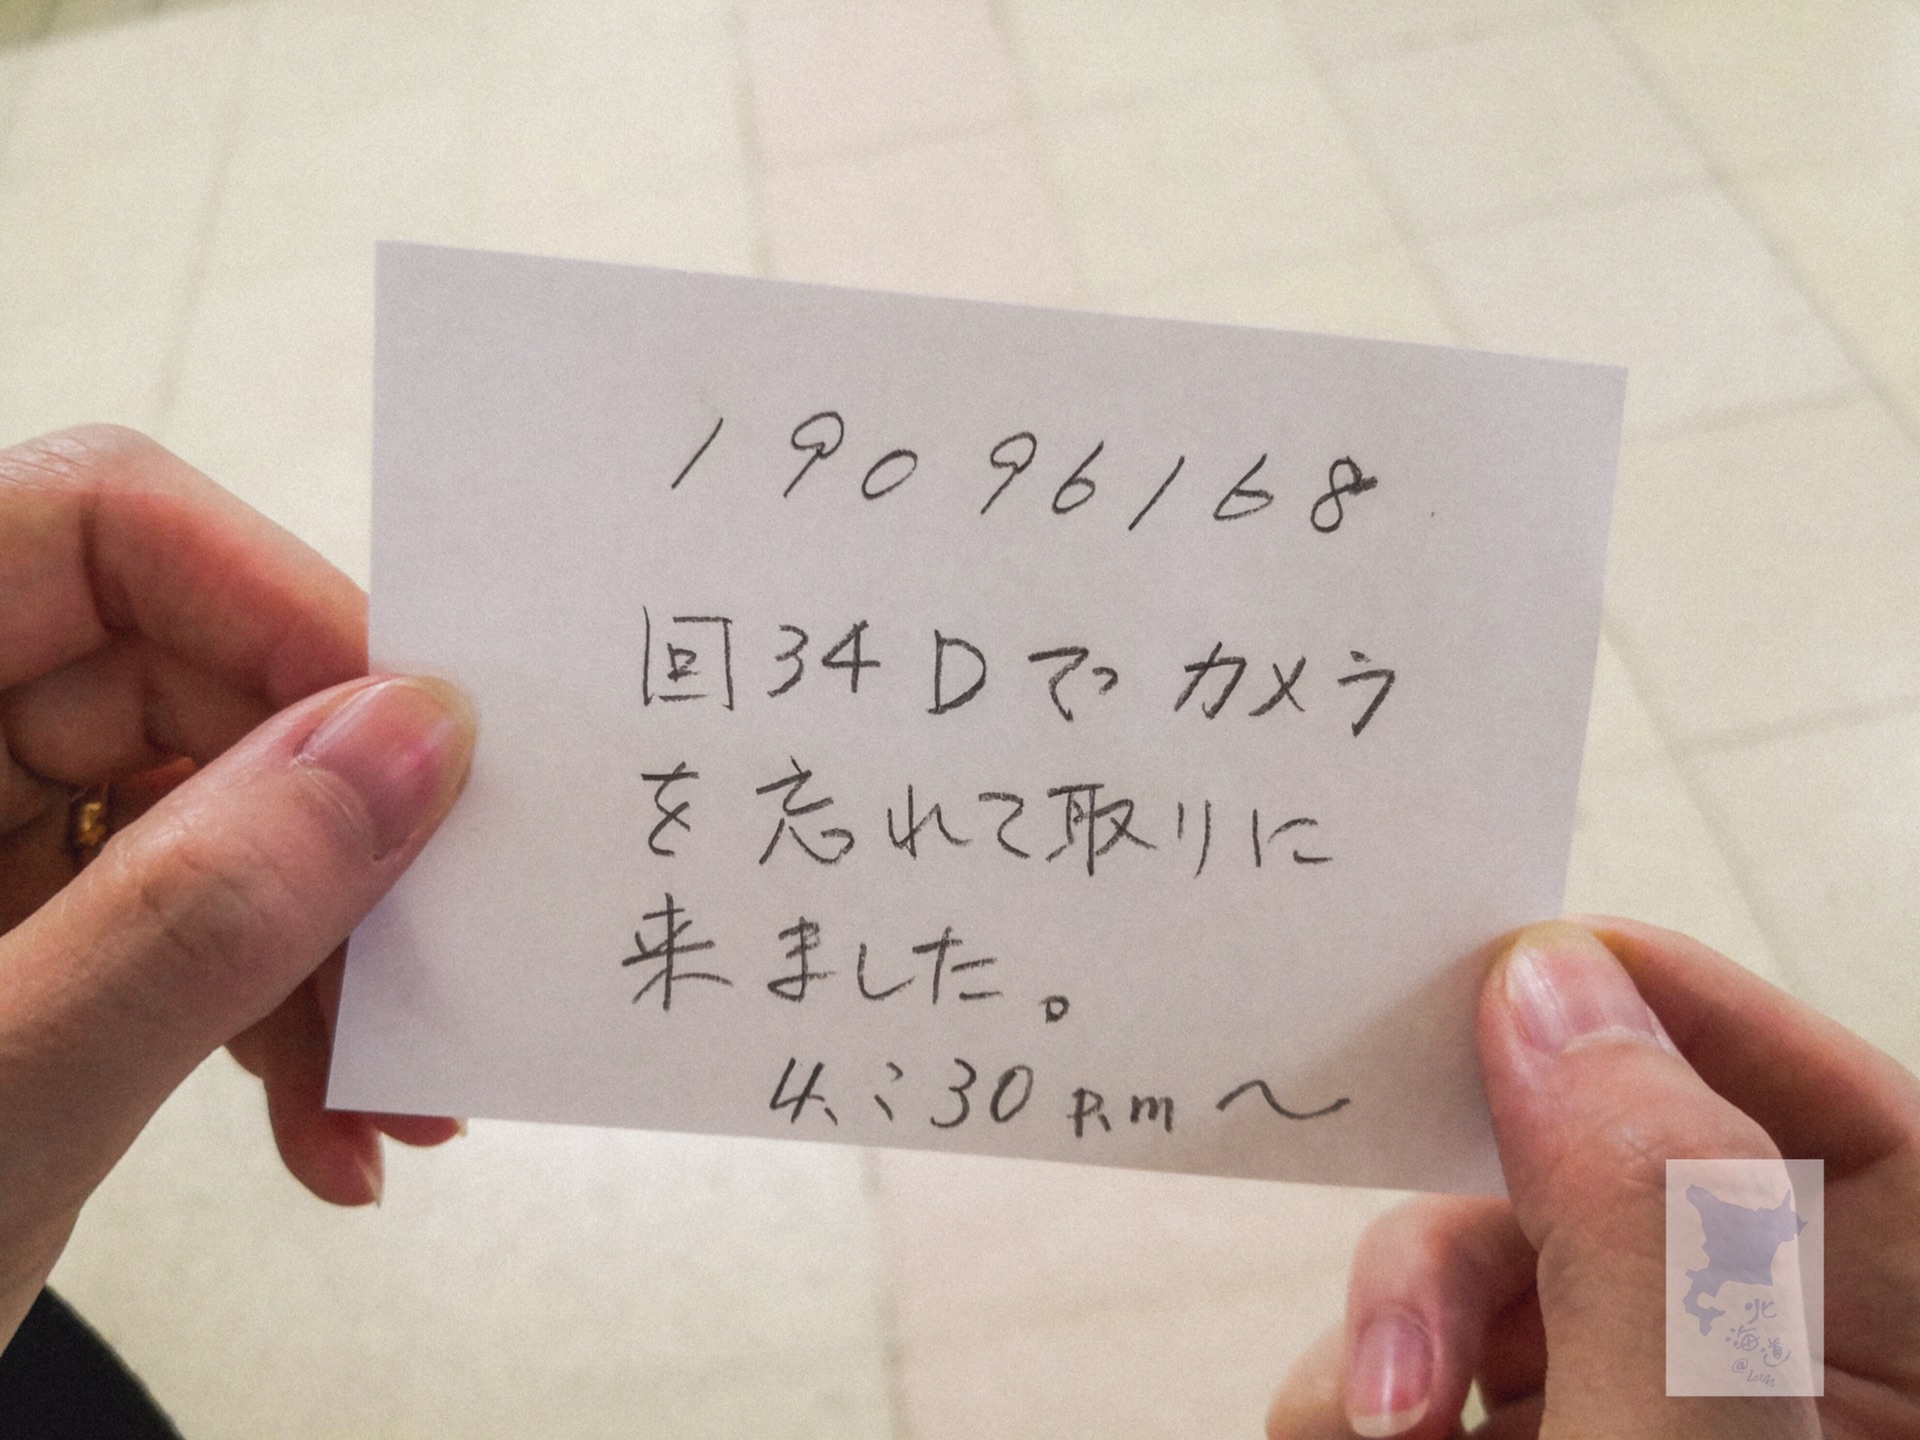 19096168
回34Dでカメラ
を忘れて取りに
来ました。
4:30 p.m～
北
海道
@Louis